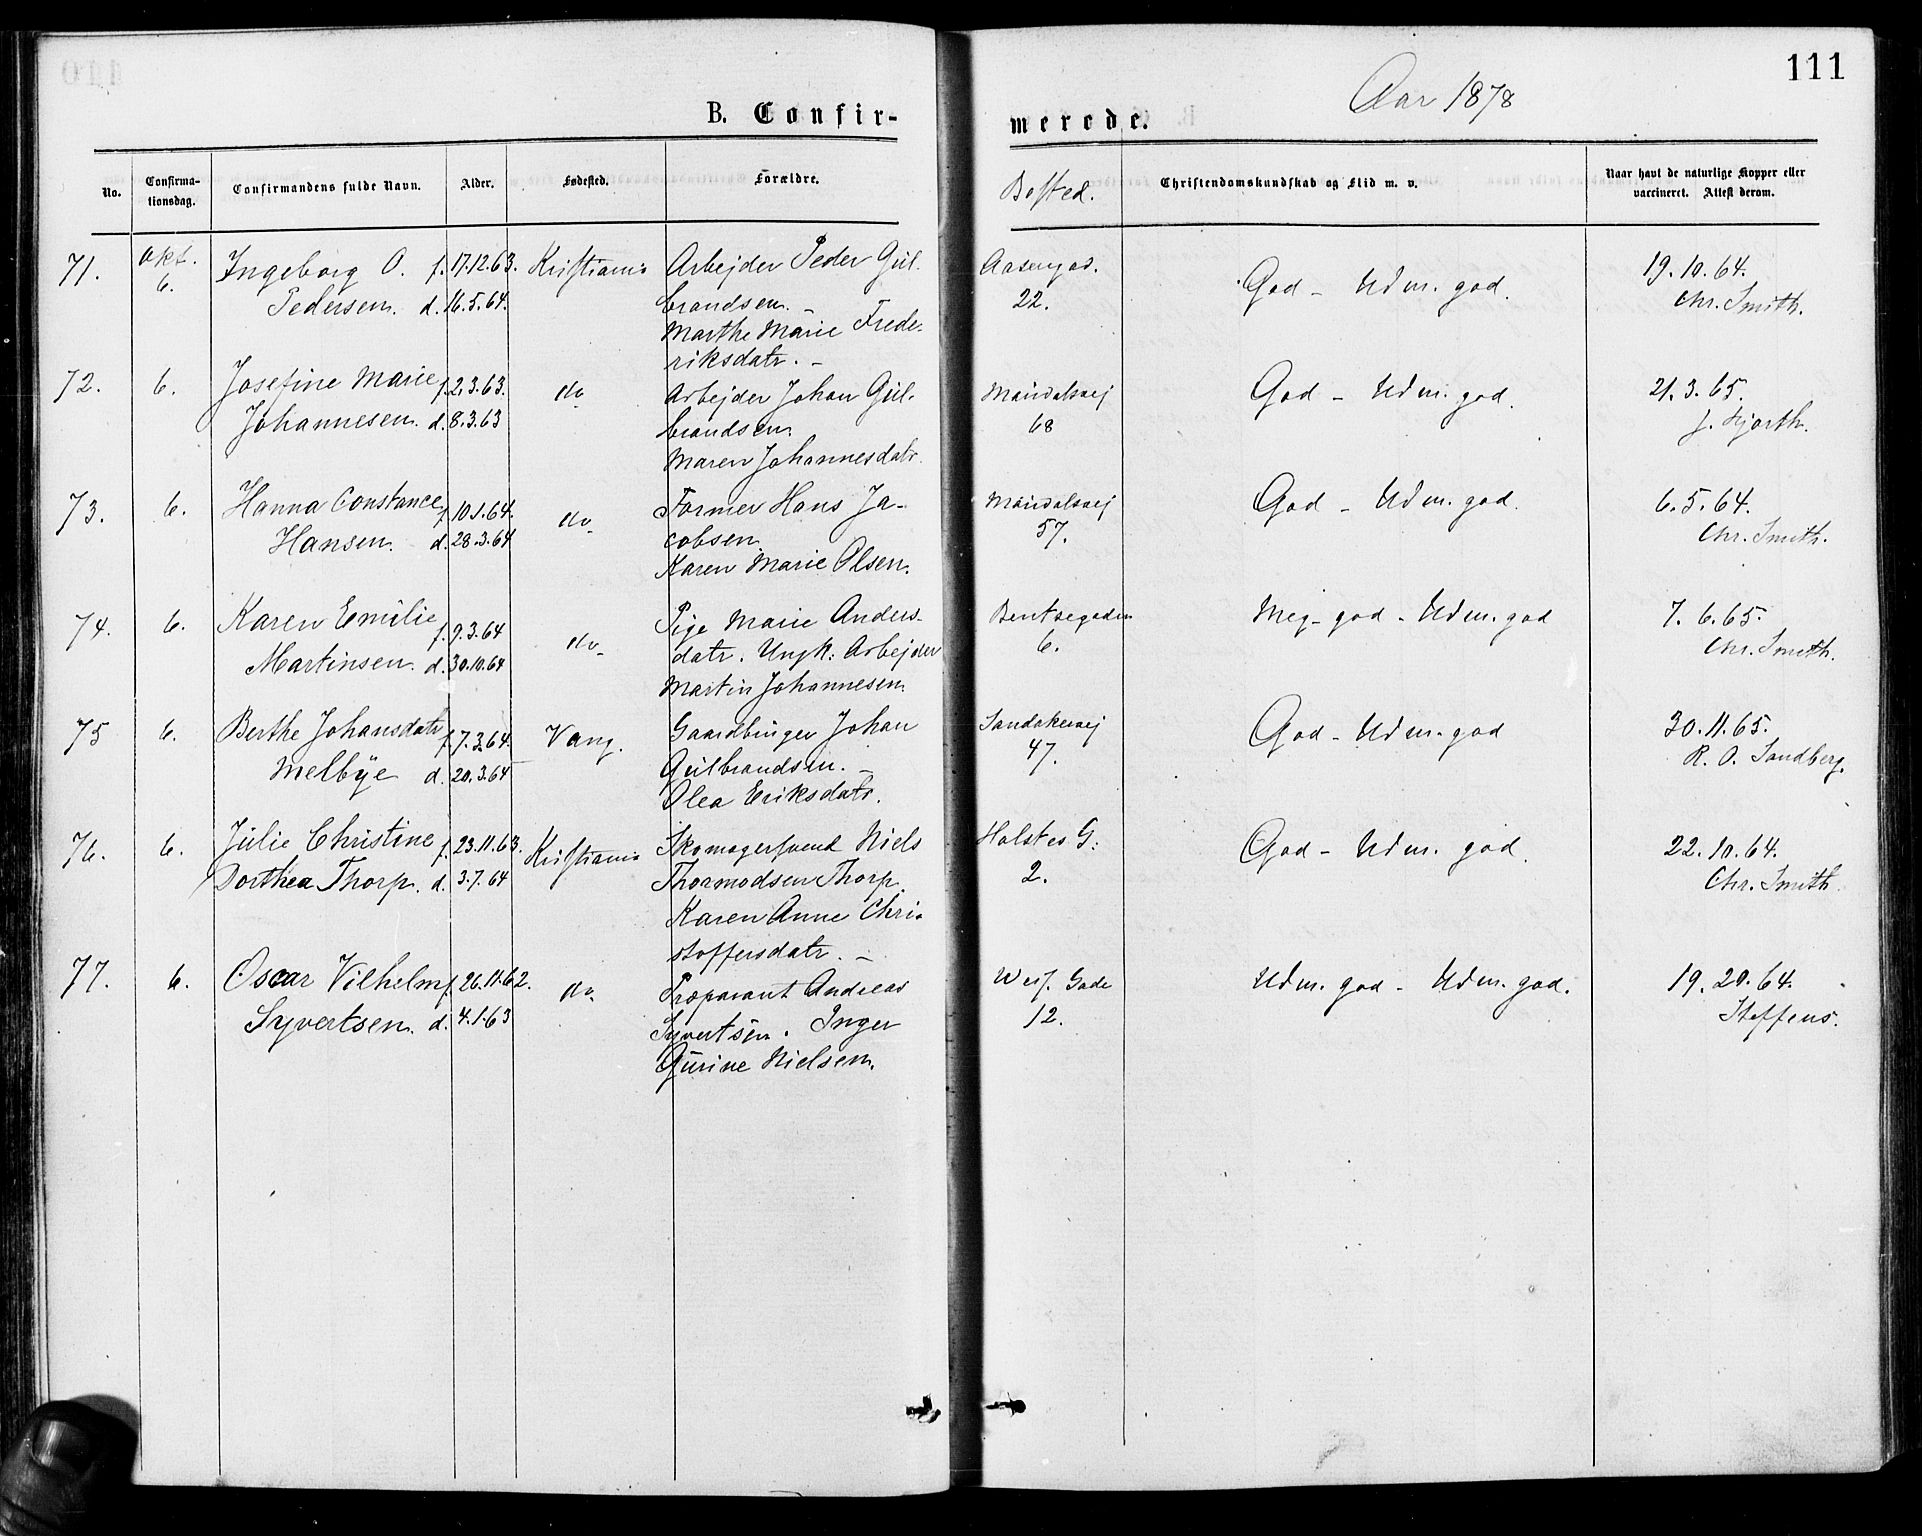 111
Aar 1878
B. Confir-
merede.
No.
Confirma-
tionsdag.
Confirmandens fulde Navn.
Alder.
Fødested.
Forældre.
Bosted.
Christendomskundskab og Flid m. v.
Naar havt de naturlige Kopper eller
vaccineret. Attest derom.
71.
Okt.
6.
Ingeborg O.
Pedersen.
f. 17.12.63.
d. 16.5.64.
Kristiania
Arbejder Peder Gul-
brandsen. –
Marthe Marie Frede-
riksdatr. –
Aasengad.
22.
God – Udm. god.
19.10.64.
Chr. Smith.
72.
6.
Josefine Marie
Johannesen.
f. 2.3.63.
d. 8.3.63
do
Arbejder Johan Gul-
brandsen.
Maren Johannesdatr.
Maridalsvej
68
God – Udm. god.
21.3.65.
J. Hjorth.
73.
6.
Hanna Constance
Hansen.
f. 10.1.64.
d. 28.3.64
do
Former Hans Ja-
cobsen.
Karen Marie Olsen.
Maridalsvej
57.
God – Udm. god.
6.5.64.
Chr. Smith.
74.
6.
Karen Emilie
Martinsen.
f. 9.3.64
d. 30.10.64
do
Pige Marie Anders-
datr. Ungk. Arbejder
Martin Johannesen.
Bentsegaden
6.
Meg- god - Udm. god
7.6.65.
Chr. Smith.
75
6.
Berthe Johansdatr
Melbye
f. 7.3.64.
d. 20.3.64
Vang.
Gaardbruger Johan
Gulbrandsen. –
Olea Eriksdatr.
Sandakervej
47.
God - Udm. god
30.11.65.
R. O. Sandberg.
76.
6.
Julie Christine
Dorthea Thorp.
f. 23.11.63.
d. 3.7.64
Kristiania
Skomagersvend Niels
Thormodsen Thorp.
Karen Anne Chri-
stoffersdatr. –
Holstes G:
2.
God – Udm. god.
22.10.64.
Chr. Smith.
77.
6.
Oscar Vilhelm
Syvertsen.
f. 26.11.62.
d. 4.1.63
do
Præparant Andreas
Syvertsen. Inger
Gurine Nielsen.
Gade
12.
Udm. god - Udm. god.
19.20.64.
Steffens.